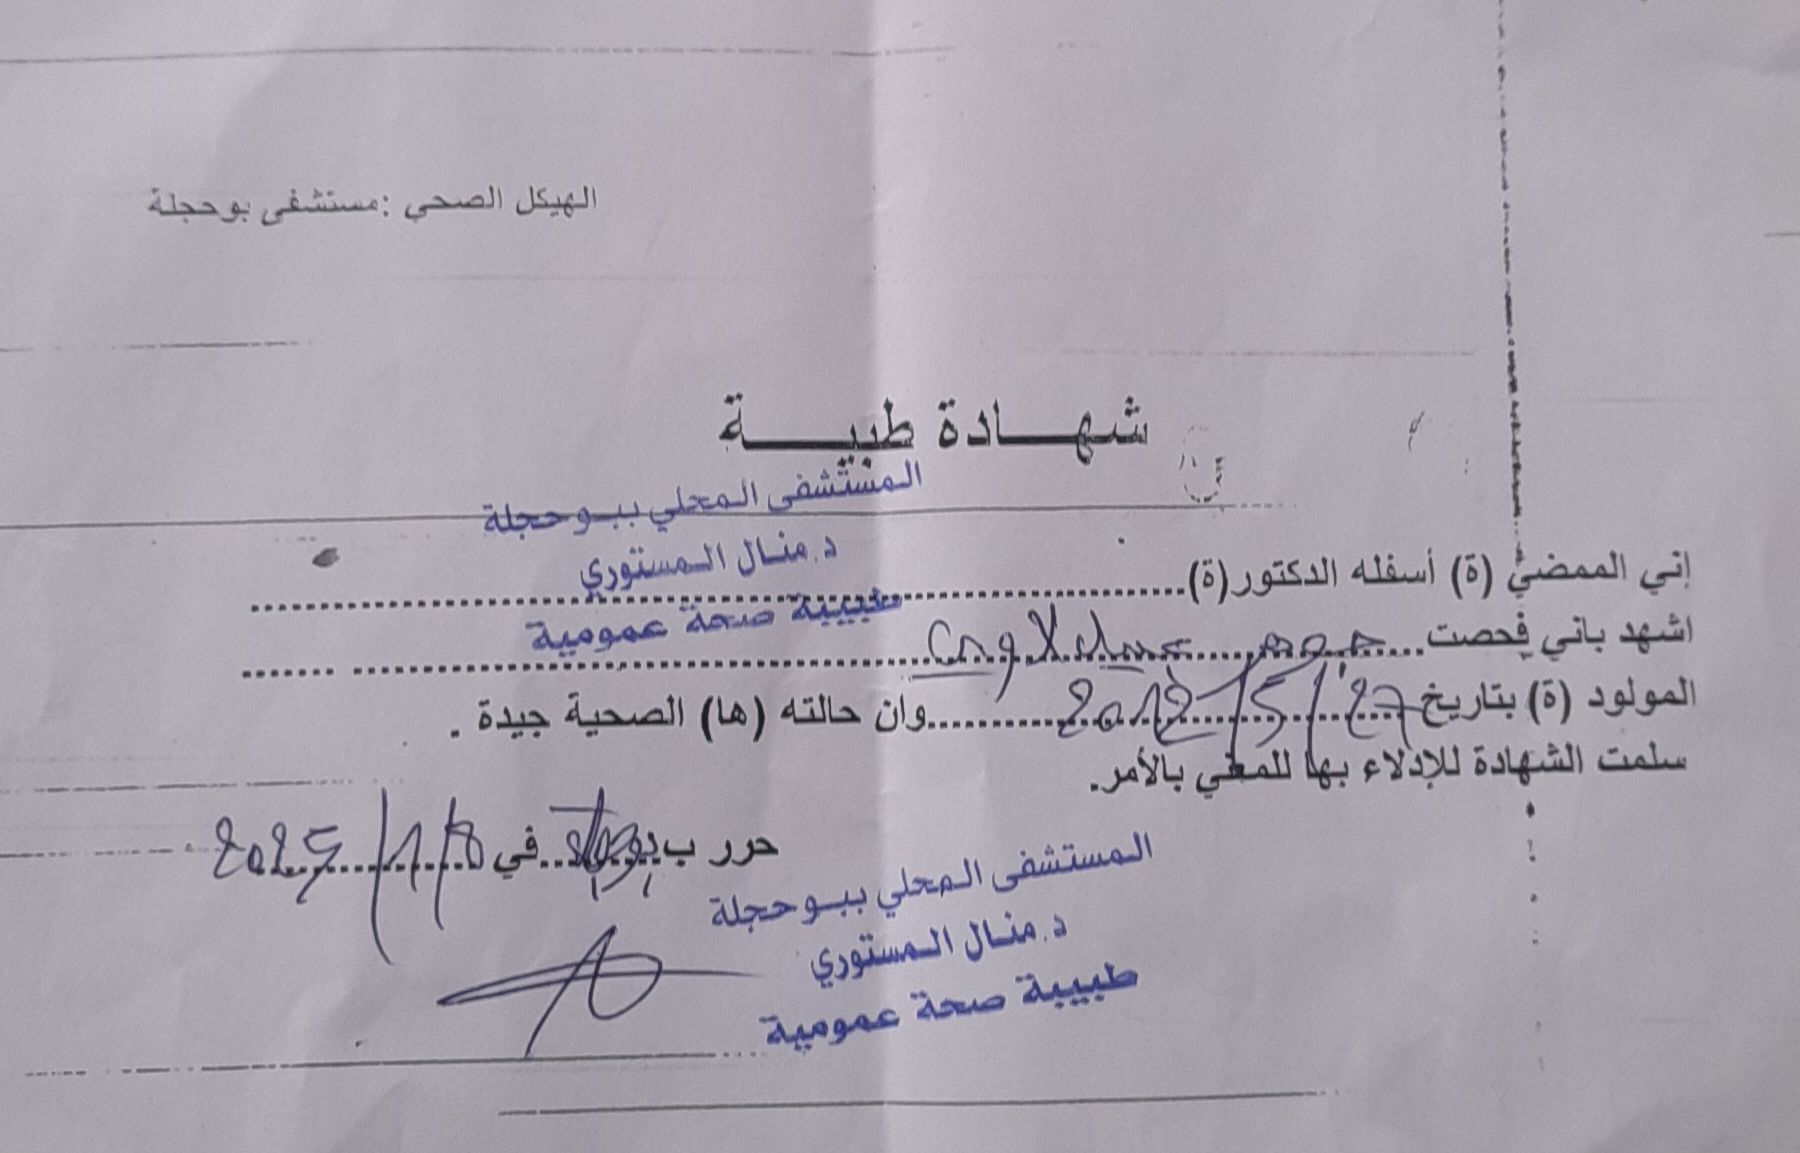 الهيكل الصحي :مستشفى بوحجلة
شهـــادة طبيـــــة
المستشفى المحلي ببوحجلة
د.منال المستوري
طبيبة صحة عمومية
إني الممضي (ة) أسفله الدكتور(ة)
اشهد باني فحصت
المولود (ة) بتاريخ 27/5/2012 وان حالته (ها) الصحية جيدة .
سلمت الشهادة للإدلاء بها للمعني بالأمر.
حرر ب في 2025
المستشفى المحلي ببوحجلة
د.منال المستوري
طبيبة صحة عمومية